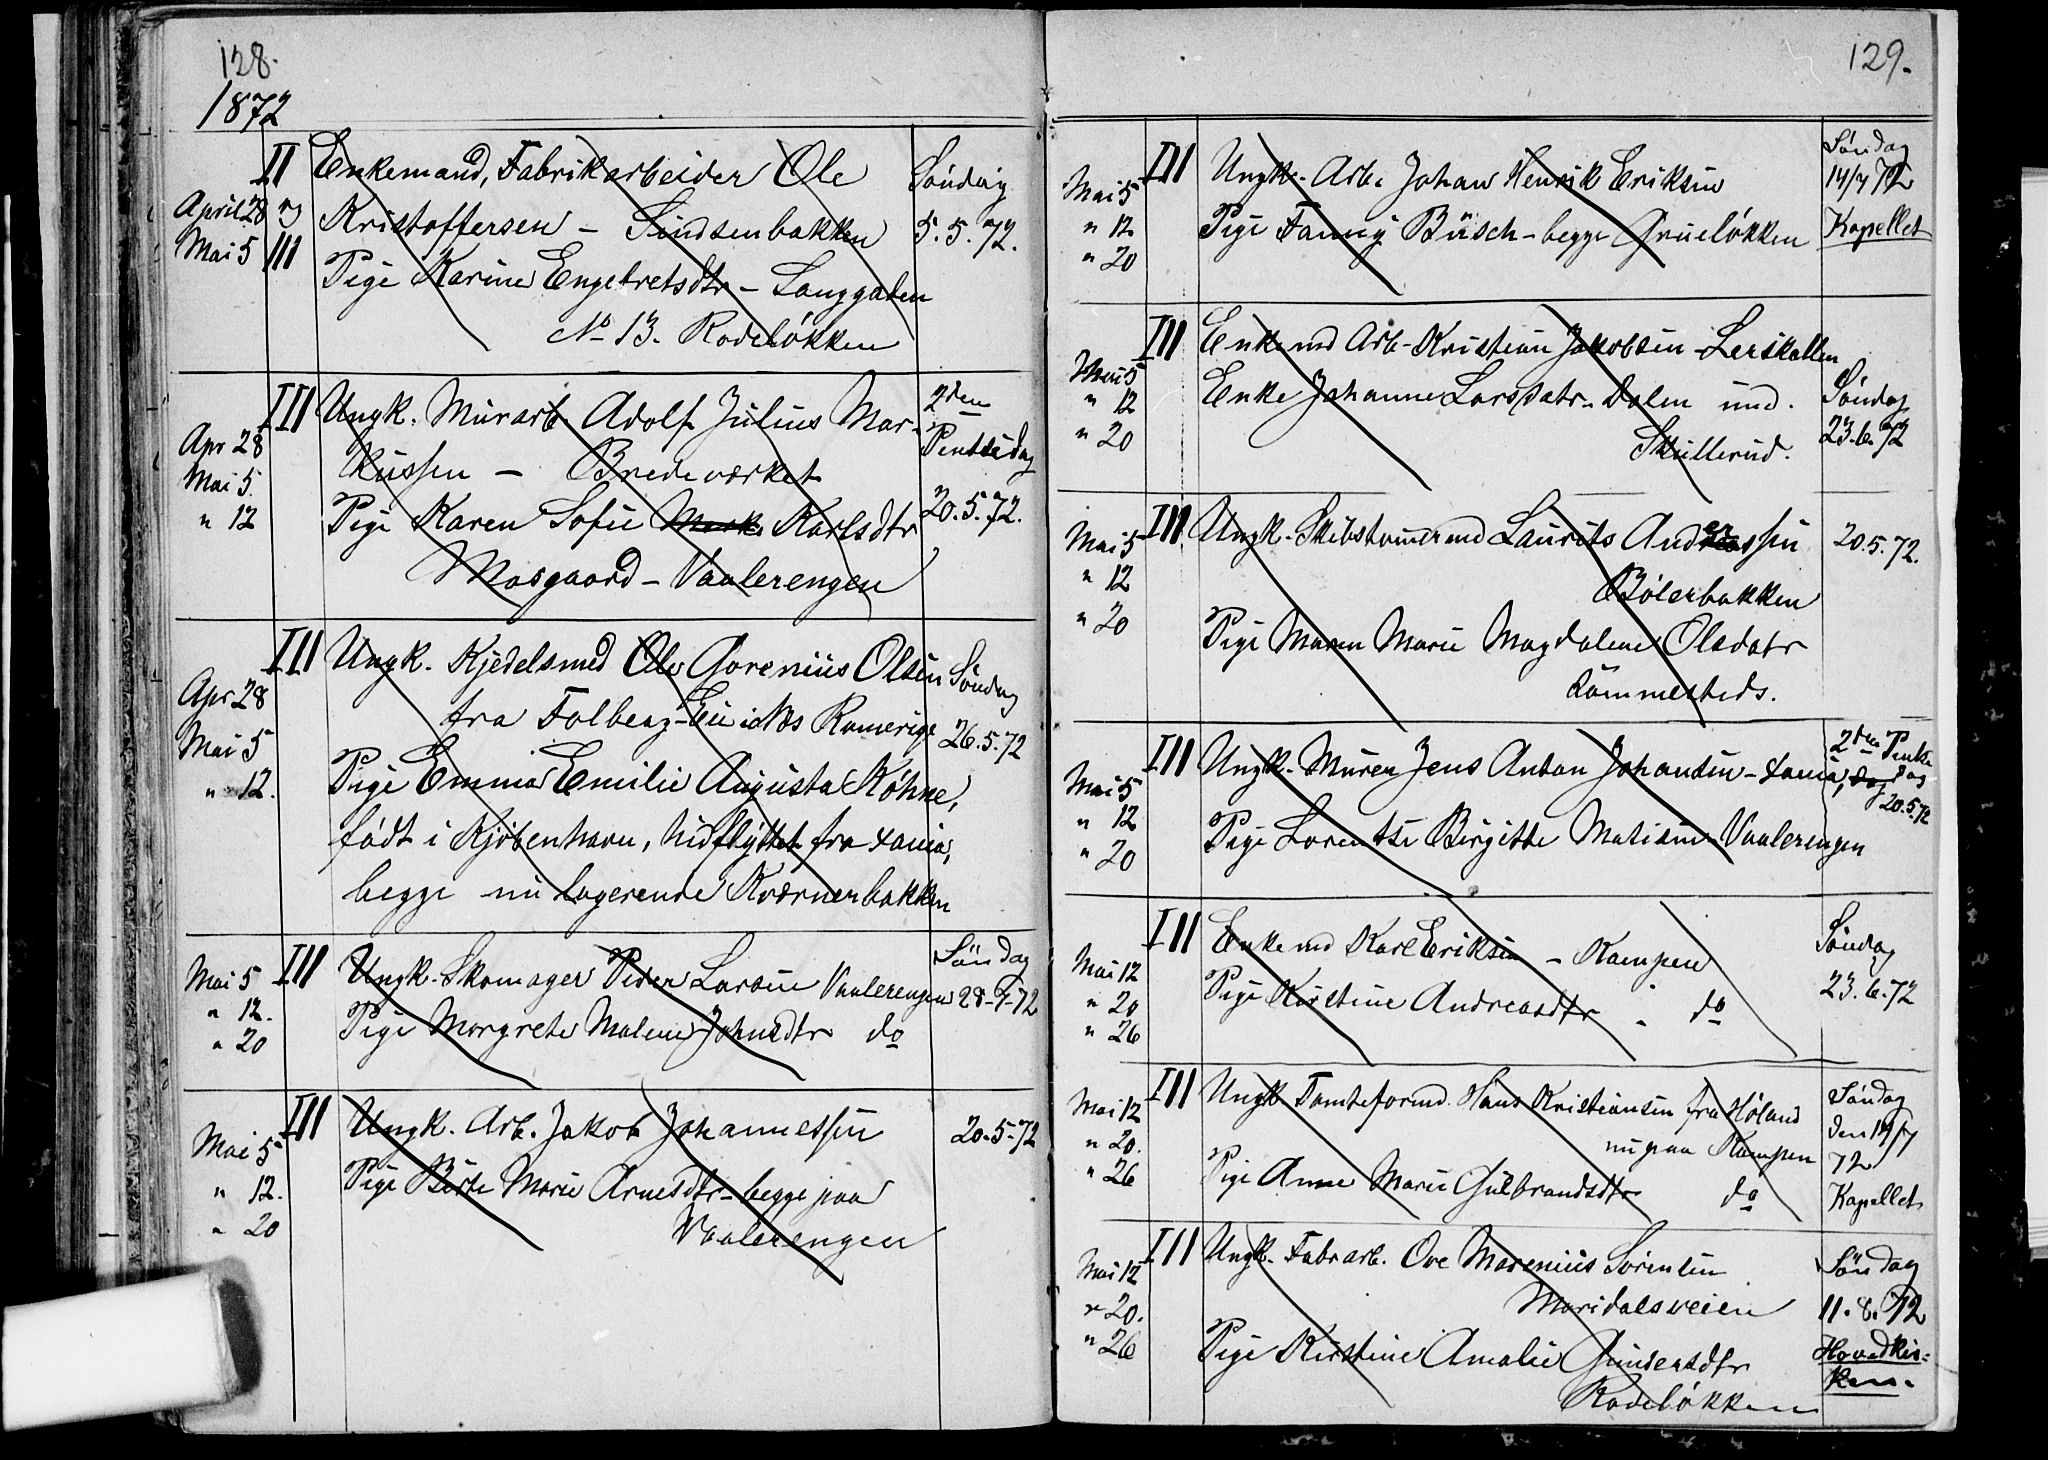 128.
1872
II Enkemand, Fabrikarbeider Ole Søndag
April 28 og Kristoffersen – Sinsenbakken 5.5.72.
Mai 5 III Pige Karine Engebretsdtr – Langgaden
No 13. Rodeløkken
III Ungk. Murarb. Adolf Julius Mar- 2den
Apr 28 kussen – Bredeværket Pentsedag
Mai 5. Pige Karen Sofie Karlsdtr 20.5.72.
" 12 Mosgaard – Vaalerengen
III Ungk. Kjedelsmed Ole Gorenius Olsen Søndag
Apr 28 fra Folberg – Romerige 26.5.72
Mai 5 Pige Emma Emilie Augusta Köhne,
" 12. født i Kjøbenhavn, hidflyttet fra Xania,
begge nu logerende Kværnerbakken
Mai 5 III Ungk. Skomager Peder Larsen Vaalerengen Søndag
" 12. Pige Margrete Malene Johnsdtr do 28-7-72
" 20
III Ungk. Arb. Jakob Johannessen 20-5-72
Mai 5 Pige Birte Marie Arnesdtr – begge paa
" 12. Vaalerengen
" 20
129.
III Ungk. Arb. Johan Henrik Eriksen Søndag
Mai 5 Pige Fanny Büsch – begge Grueløkken 14/7 72
" 12 Kapellet
" 20
III Enkemd Arb. Kristian Jakobsen – Lerskallen
Mai 5 Enke Johanne Larsdatr – Dalen und. Søndag
" 12 Skullerud. 23.6.72
" 20
Mai 5 III Ungk. Skibstømermd Laurits Anderssen 20.5.72.
" 12 Bølerbakken
" 20 Pige Maren Marie Magdalene Olsdatr
sammesteds.
III Ungk. Murer Jens Anton Johansen – Xania, 2den Pentse
Mai 5 dag
" 12 20.5.72
" 20 Pige Lorentse Birgitte Matisen – Vaalerengen
III Enkemd Karl Eriksen – Kampen Søndag
Mai 12 Pige Kirstine Andreasdtr – do 23.6.72
" 20
" 26
III Ungk Tomteformd. Hans Kristiansen fra Høland Søndag
Mai 12 nu paa Kampen den 14/7
" 20. Pige Anne Marie Gulbrandsdtr do 72
" 26 Kapellet
III Ungk. Fabrarb. Ove Marenius Sørensen Søndag
Mai 12 Maridalsveien 11.8.72
" 20. Pige Kirstine Amalie Gundersdtr Hovedkir-
" 26 Rodeløkken ken.